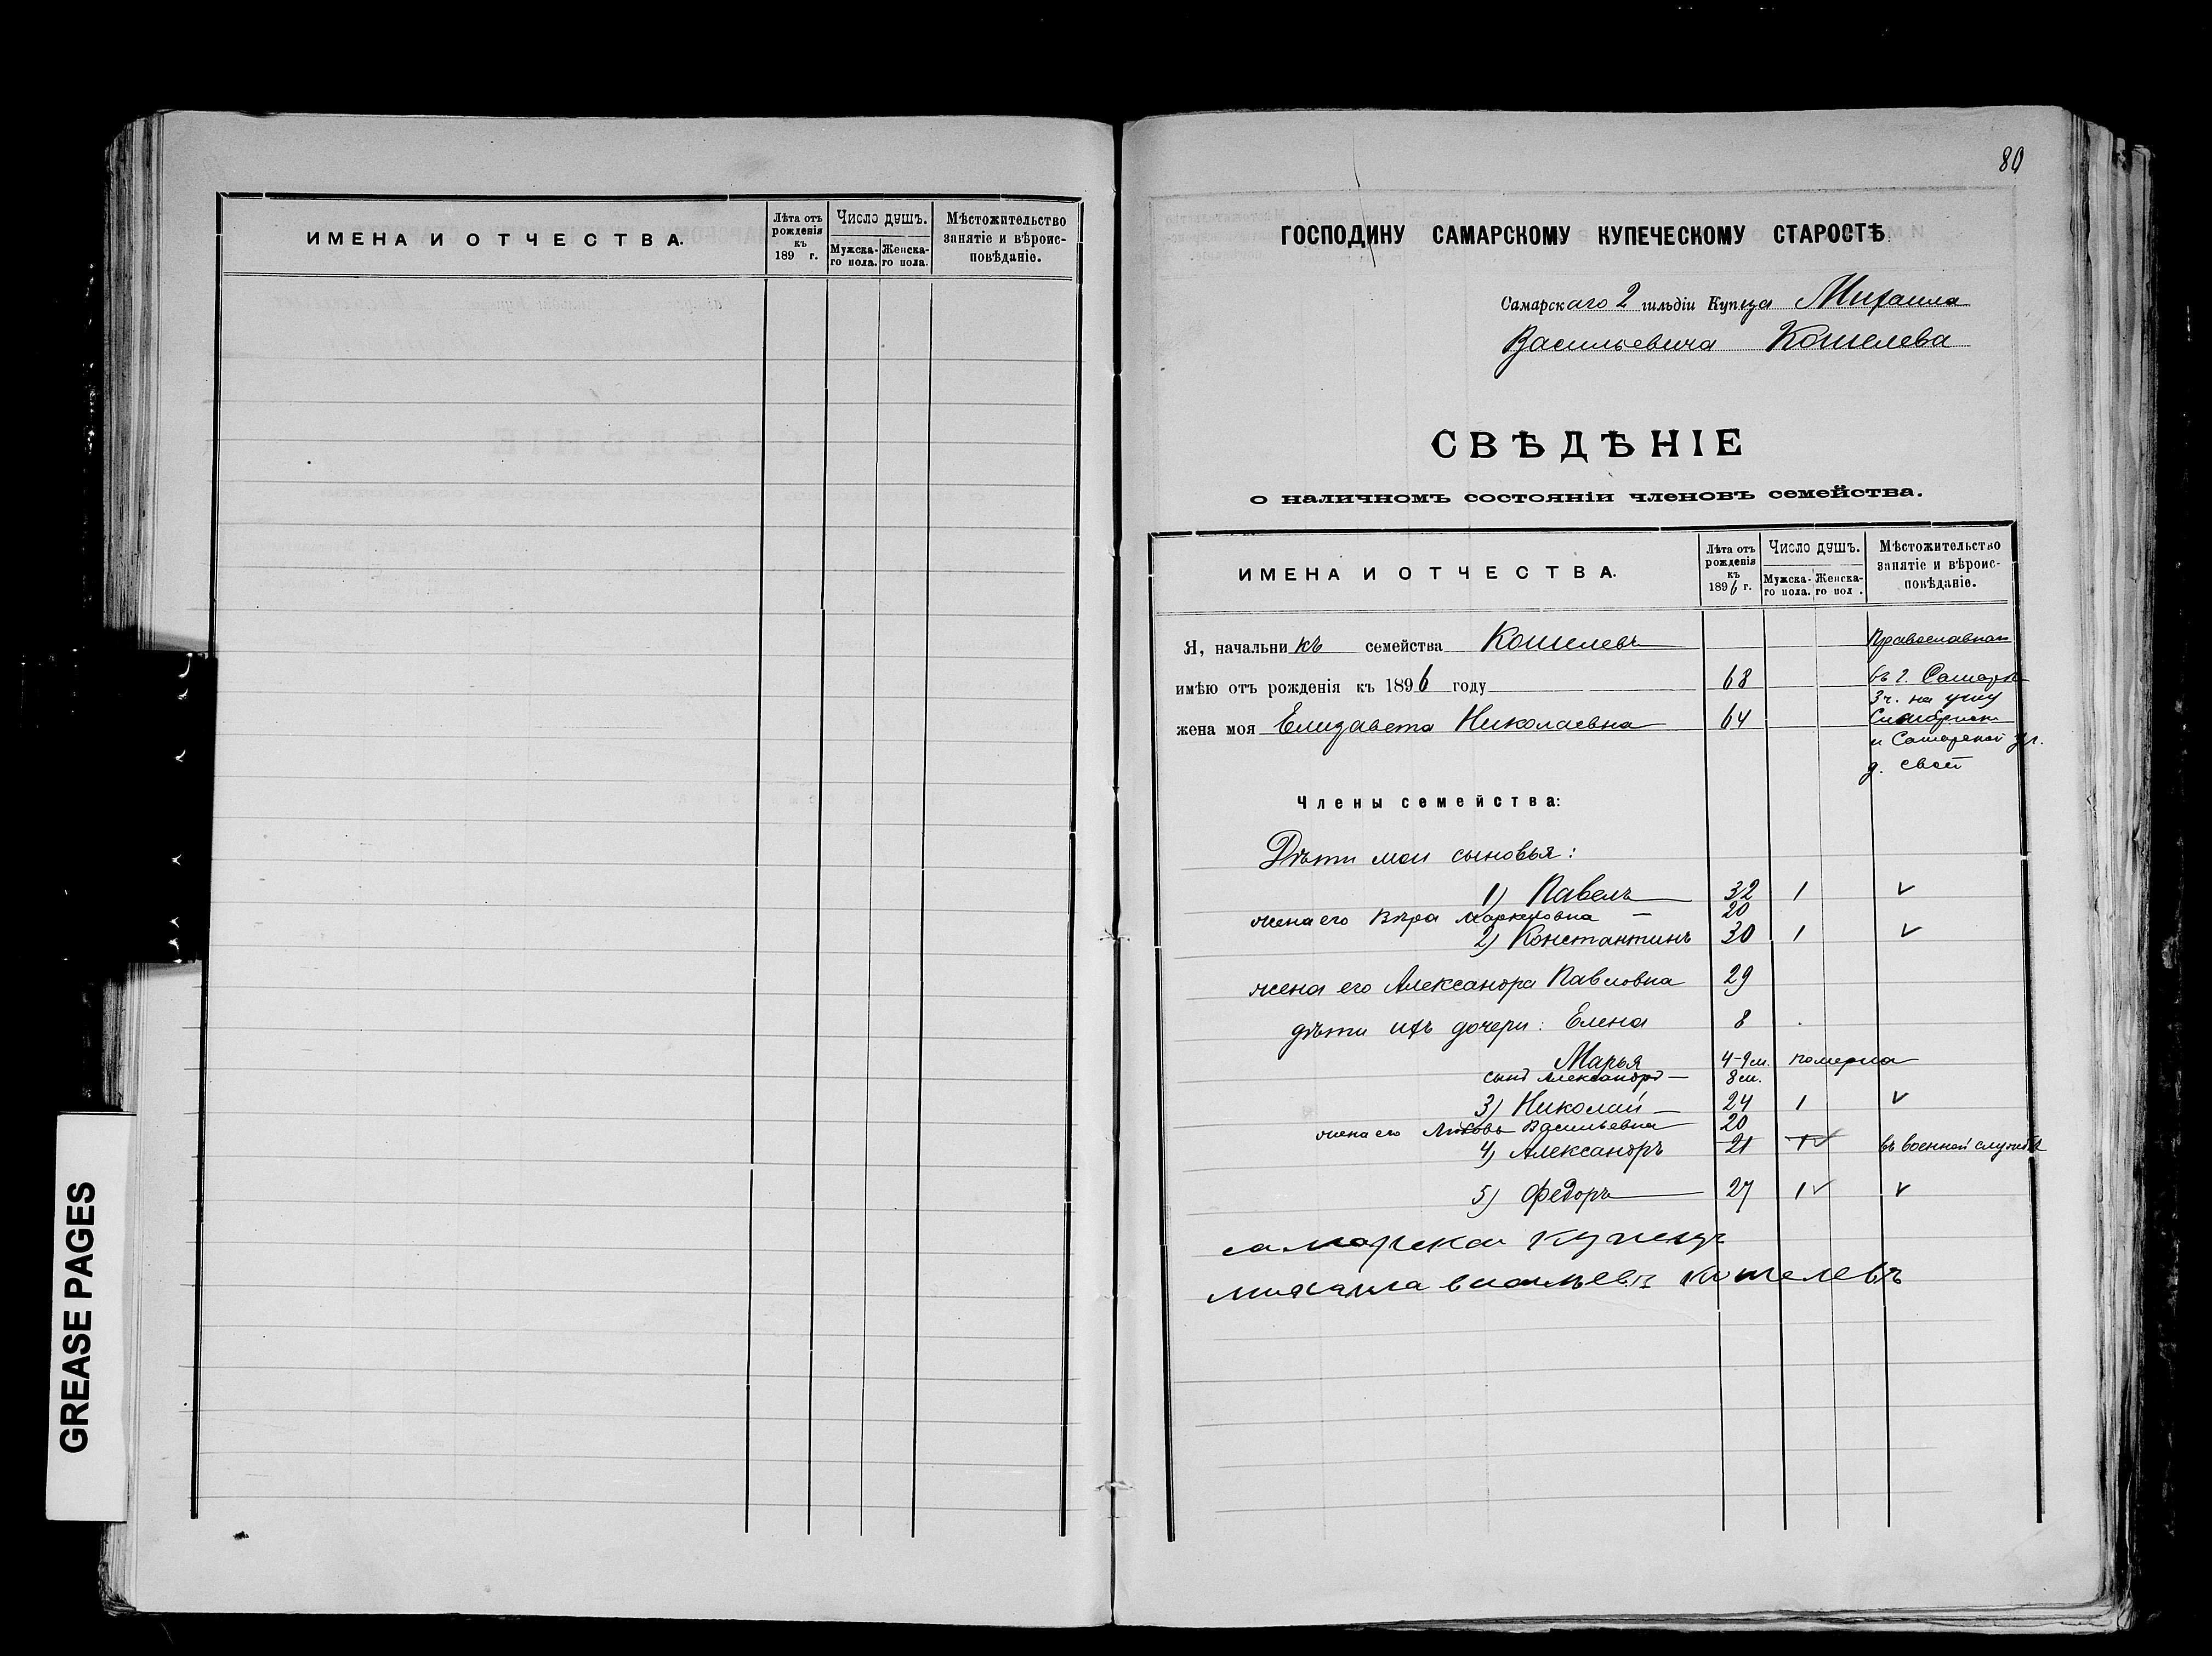 GREASE PAGES
ИМЕНА И ОТЧЕСТВА.
Лѣта отъ рожденія къ 189 г.
Число душъ.
Мужска-го пола.
Женска-го пола.
Мѣстожительство занятіе и вѣроис-повѣданіе.
80
ГОСПОДИНУ САМАРСКОМУ КУПЕЧЕСКОМУ СТАРОСТѢ
Самарскаго 2 гильдіи Купца Михаила
Васильевича Кошелева
СВѢДѢНІЕ
о наличномъ состояніи членовъ семейства.
ИМЕНА И ОТЧЕСТВА.
Лѣта отъ рожденія къ 1896 г.
Число душъ.
Мужска-го пола.
Женска-го пол .
Мѣстожительство занятіе и вѣроис-повѣданіе.
Я, начальникъ семейства Кошелевъ Православнаго
имѣю отъ рожденія къ 1896 году 68 въ г. Самарѣ
3 ч. на углу
жена моя Елизавета Николаевна 64 Симбирской
и Самарской ул.
д. свой
Члены семейства:
Дѣти мои сыновья:
1) Павелъ 32 1 ✓
жена его Вѣра Маркеловна — 20
2) Константинъ 30 1 ✓
жена его Александра Павловна 29
дѣти ихъ дочери: Елена 8
Марья 4-9 м. померла
сынъ Александръ — 8 м.
3) Николай — 24 1 ✓
жена его Любовь Васильевна 20
4) Александръ 21 1 ✓ въ военной службѣ
5) Федоръ 27 1 ✓ ✓
самарскай купецъ
михаила васильевъ кошелевъ